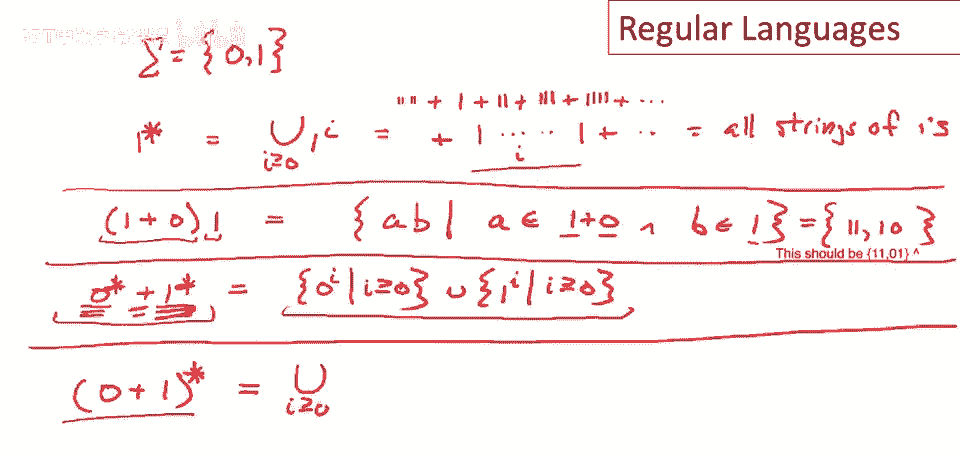 Regular Languages
Σ = {0,1}
1* = ⋃ i≥0 1^i = "" + 1 + 11 + 111 + 1111 + ...
+ 1 ..... 1 + .. = all strings of 1's
i
(1+0)1 = {ab | a ∈ 1+0 ∧ b ∈ 1} = {11,10}
This should be {11,01} ^
0* + 1* = {0^i | i≥0} ∪ {1^i | i≥0}
(0+1)* = ⋃ i≥0